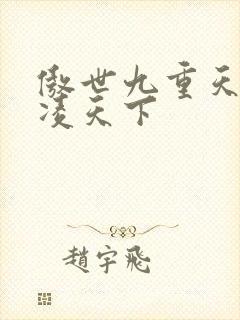 傲世九重天
凌天下
趙宇飛